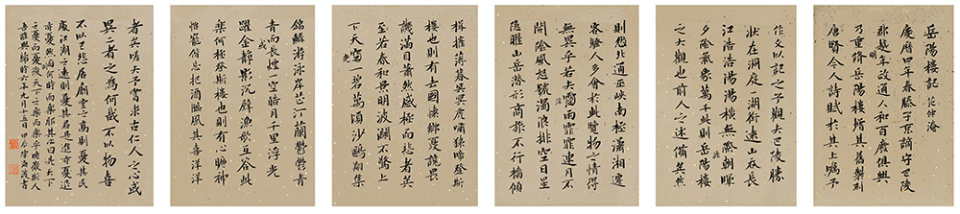 岳陽樓記 范仲淹
慶曆四年春滕子京謫守巴陵
郡越明年政通人和百廢俱興
乃重修岳陽樓增其舊制刻
唐賢今人詩賦於其上囑予
作文以記之予觀夫巴陵勝
狀在洞庭一湖銜遠山吞長
江浩浩湯湯橫無際涯朝暉
夕陰氣象萬千此則岳陽樓
之大觀也前人之述備矣然
則北通巫峽南極瀟湘遷
客騷人多會於此覽物之情得
無異乎若夫霪雨霏霏連月不
開陰風怒號濁浪排空日星
隱曜山岳潛形商旅不行檣傾
楫摧薄暮冥冥虎嘯猿啼登斯
樓也則有去國懷鄉憂讒畏
譏滿目蕭然感極而悲者矣
至若春和景明波瀾不驚上
下天光一碧萬頃沙鷗翔集
錦鱗游泳岸芷汀蘭鬱鬱青
青而或長煙一空皓月千里浮光
躍金靜影沉璧漁歌互答此
樂何極登斯樓也則有心曠神
怡寵辱偕忘把酒臨風其喜洋洋
者矣嗟夫予嘗求古仁人之心或
異二者之為何哉不以物喜
不以己悲居廟堂之高則憂其民
處江湖之遠則憂其君是進亦憂退
亦憂然則何時而樂耶其必曰先天下
之憂而憂後天下之樂而樂乎噫微斯人
吾誰與歸時六年九月十五日 甲辰